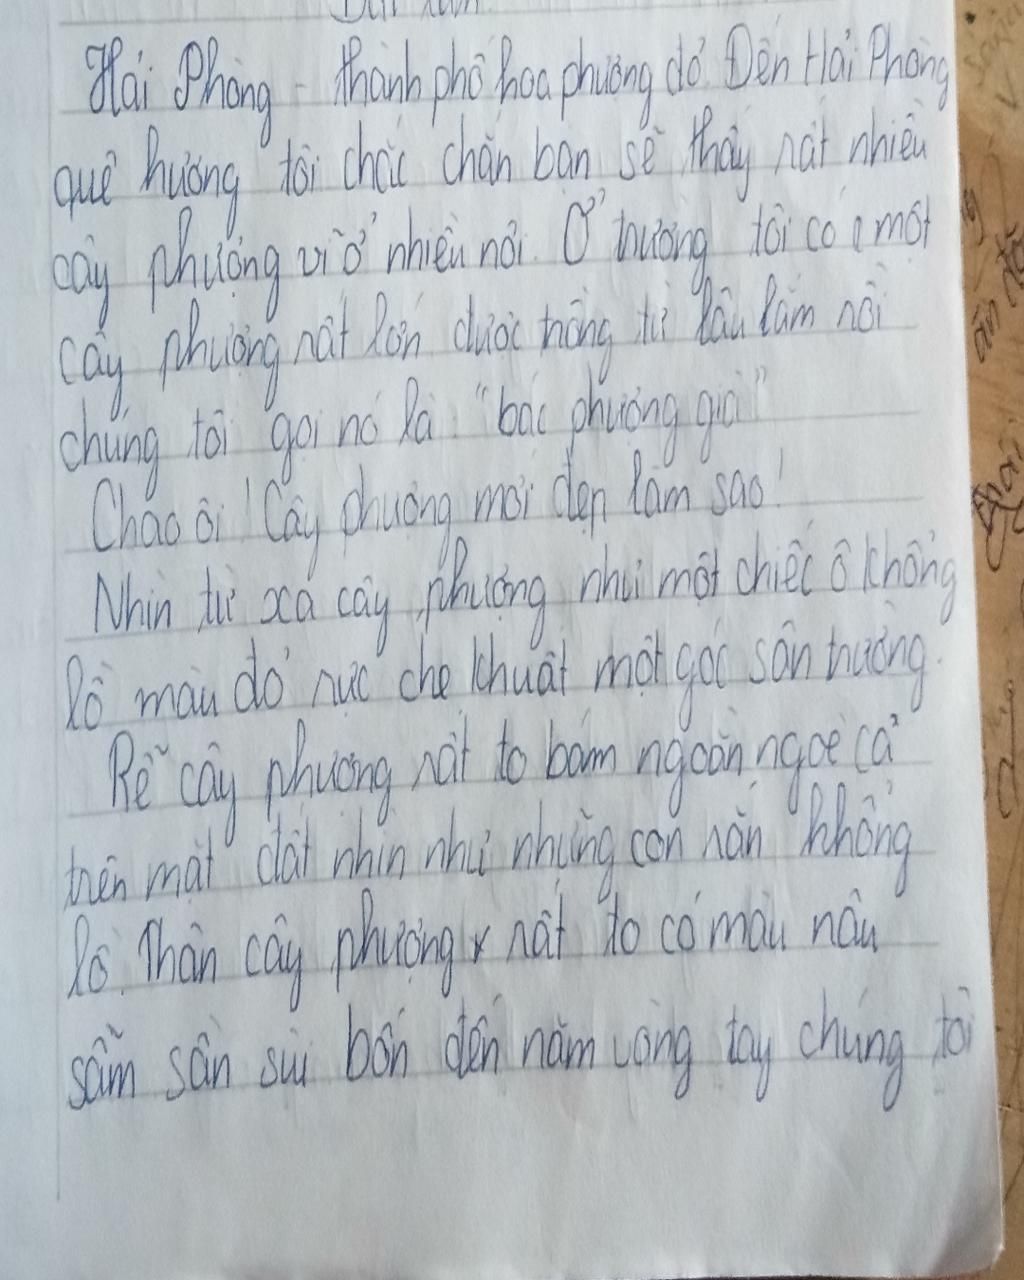 Hải Phòng - thành phố hoa phượng đỏ. Đến Hải Phòng
quê hương tôi chắc chắn bạn sẽ thấy rất nhiều
cây phượng vĩ ở nhiều nơi. Ở trường tôi có một
cây phượng rất lớn được trồng từ lâu lắm rồi
chúng tôi gọi nó là "bác phượng già"
Chao ôi! Cây phượng mới đẹp làm sao!
Nhìn từ xa cây phượng như một chiếc ô khổng
lồ màu đỏ rực che khuất một góc sân trường.
Rễ cây phượng rất to bám ngoằn ngoè cả
trên mặt đất nhìn như những con rắn khổng
lồ. Thân cây phượng rất to có màu nâu
sẫm sần sùi bốn đến năm vòng tay chúng tôi